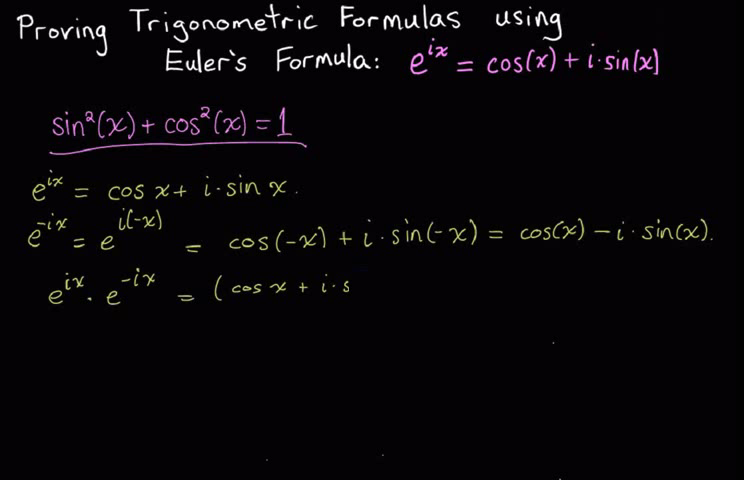 Proving Trigonometric Formulas using
Euler's Formula: e^{ix} = cos(x) + i·sin(x)
sin²(x) + cos²(x) = 1
e^{ix} = cos x + i·sin x.
e^{-ix} = e^{i(-x)} = cos(-x) + i·sin(-x) = cos(x) - i·sin(x).
e^{ix} · e^{-ix} = (cos x + i·s